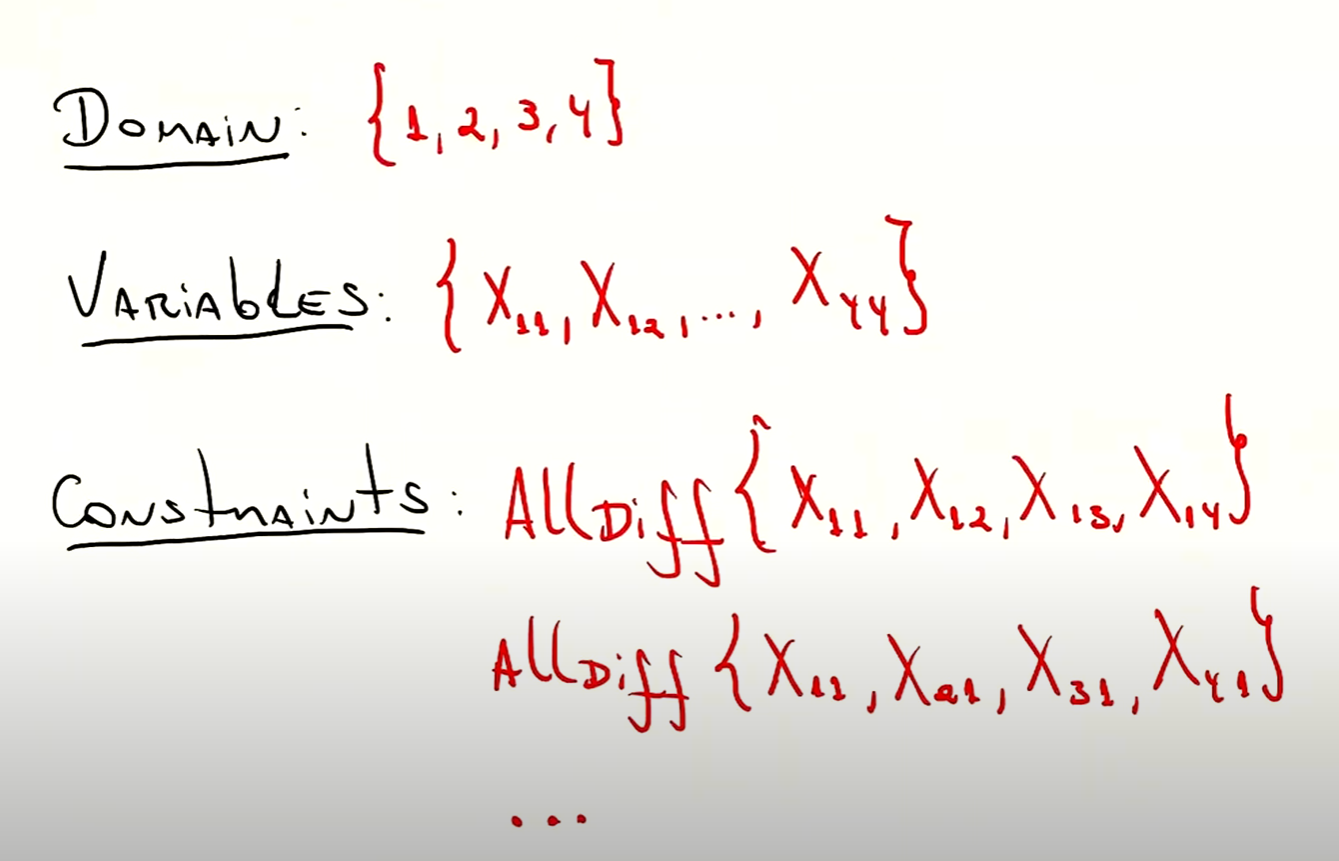 Domain: {1, 2, 3, 4}
Variables: {X₁₁, X₁₂, ..., X₄₄}
Constraints: AllDiff{X₁₁, X₁₂, X₁₃, X₁₄}
AllDiff{X₁₁, X₂₁, X₃₁, X₄₁}
...